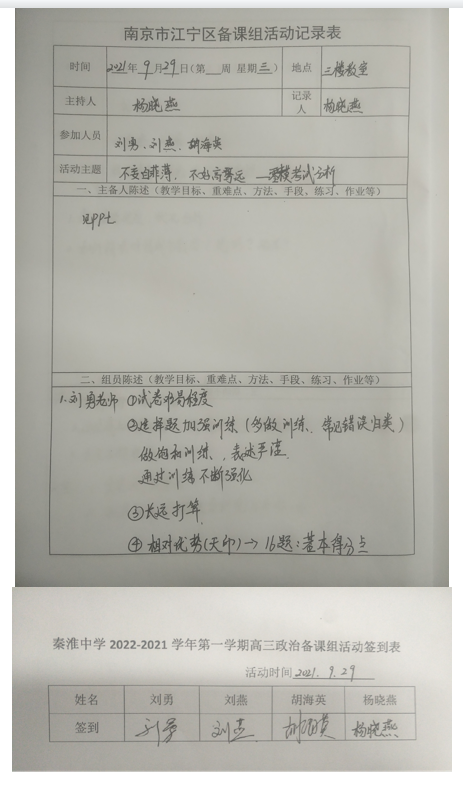 南京市江宁区备课组活动记录表
时间 2021年 9月29日(第 周 星期三) 地点 三楼教室
主持人 杨晓燕 记录人 杨晓燕
参加人员 刘勇、刘燕、胡海英
活动主题 不妄自菲薄,不好高骛远 考试分析
一、主备人陈述(教学目标、重难点、方法、手段、练习、作业等)
见PPt
二、组员陈述(教学目标、重难点、方法、手段、练习、作业等)
1.刘勇老师 ①试卷难易程度
②选择题加强训练(多做训练、常见错误归类)
做饱和训练、表述严谨.
通过训练不断强化
③长远打算
④相对优势(天印)→16题:基本得分点
秦淮中学 2022-2021 学年第一学期高三政治备课组活动签到表
活动时间 2021.9.29
姓名 刘勇 刘燕 胡海英 杨晓燕
签到 刘勇 刘燕 胡海英 杨晓燕